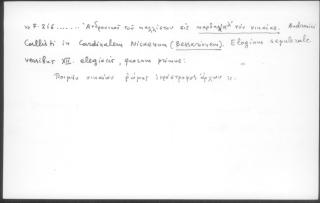 v. F. 216 ....... Ἀνδρονίκου τοῦ καλλίστου εἰς καρδηνάλ τὸν νικαίας. Andronici
Callisti in Cardinalem Nicaenum (Bessarionem). Elogium sepulcrale
versibus XII. elegiacis, quorum primus:
Ποιμὴν νικαίων ῥώμης ἄρχων